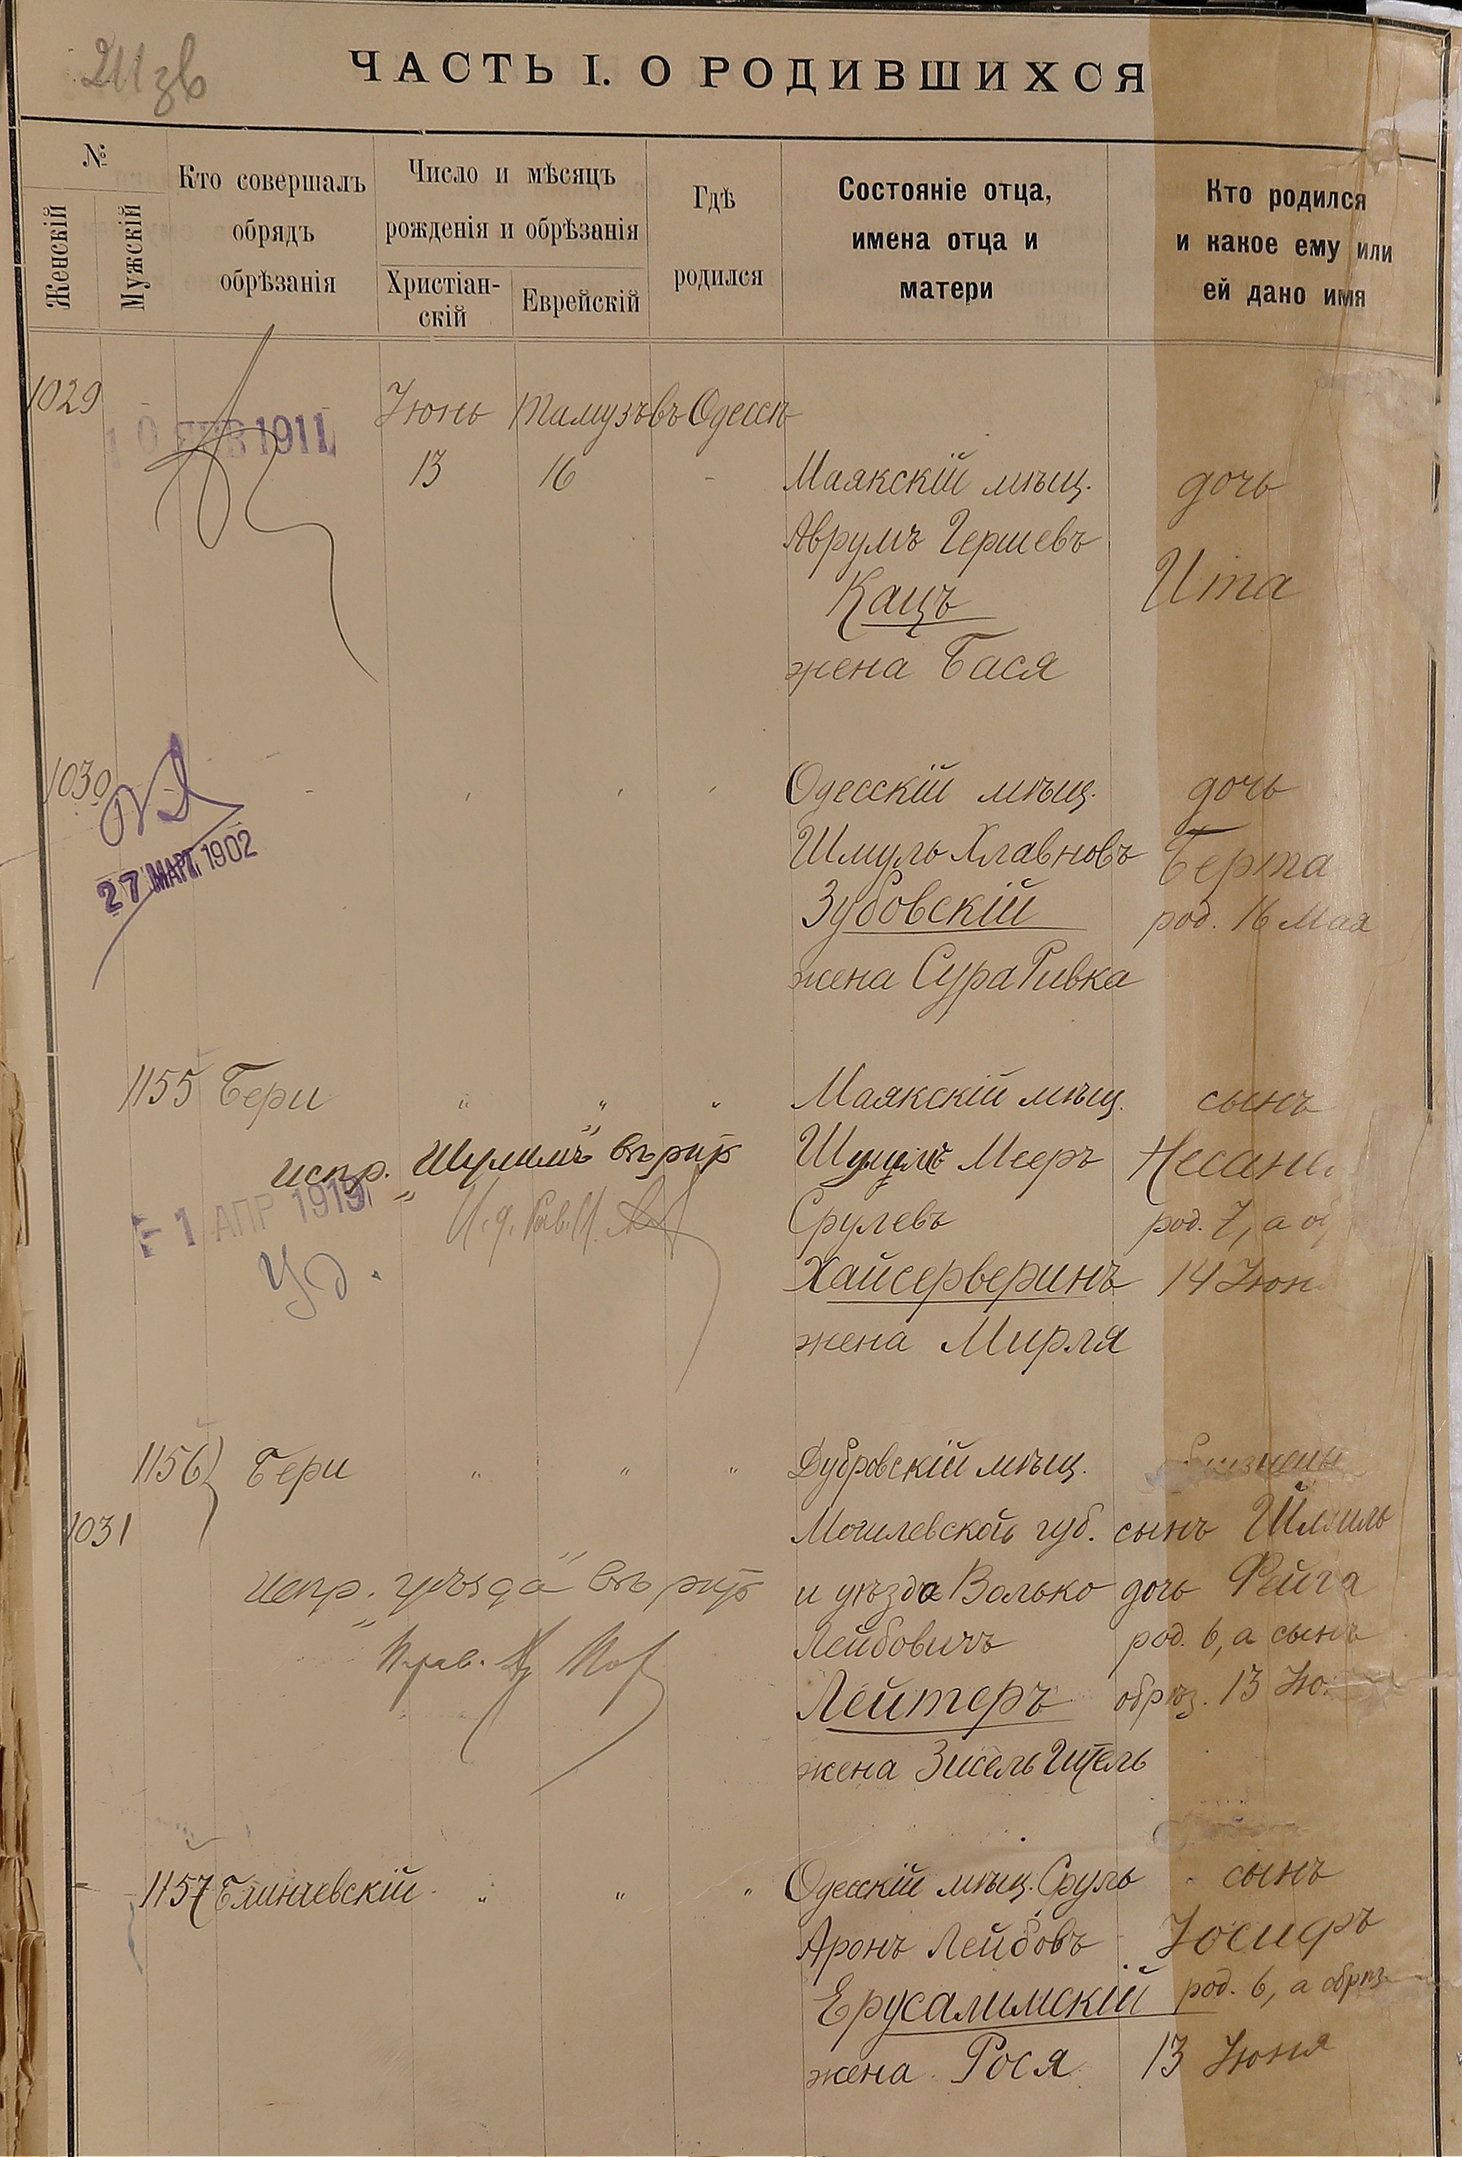 ЧАСТЬ I. О РОДИВШИХСЯ
№
Женскій
Мужскій
Кто совершалъ
обрядъ
обрѣзанія
Число и мѣсяцъ
рожденія и обрѣзанія
Христіан-
скій
Еврейскій
Гдѣ
родился
Состояніе отца,
имена отца и
матери
Кто родился
и какое ему или
ей дано имя
1029 Іюнь Тамузъ въ Одессѣ
1911
13 16 - Маякскій мѣщ. дочь
Аврумъ Гершевъ
Кацъ Ита
жена Бася
1030 Одесскій мѣщ. дочь
27 МАРТ 1902
Шмуль Хлавновъ Берта
Зубовскій род. 16 Мая
жена Сура Ривка
1155 Бери " " " Маякскій мѣщ. сынъ
испр. "Шулимъ" вѣрно Шулимъ Мееръ
1 АПР 1915
Срулевъ род. 7, а
Хайсерверинъ 14
жена Мирля
1156 Бери " " " Дубровскій мѣщ. близнецы
1031 Могилевской губ. сынъ Шмиль
испр. "уѣзда" вѣрно и уѣзда Волько дочь Фейга
Лейбовичъ род. 6, а сынъ
Лейтеръ обрѣз. 13
жена Зисель
1157 " " " Одесскій мѣщ. Сруль сынъ
Аронъ Лейбовъ Іосифъ
Ерусалимскій род. 6, а обрѣз
жена Рося 13 Іюня